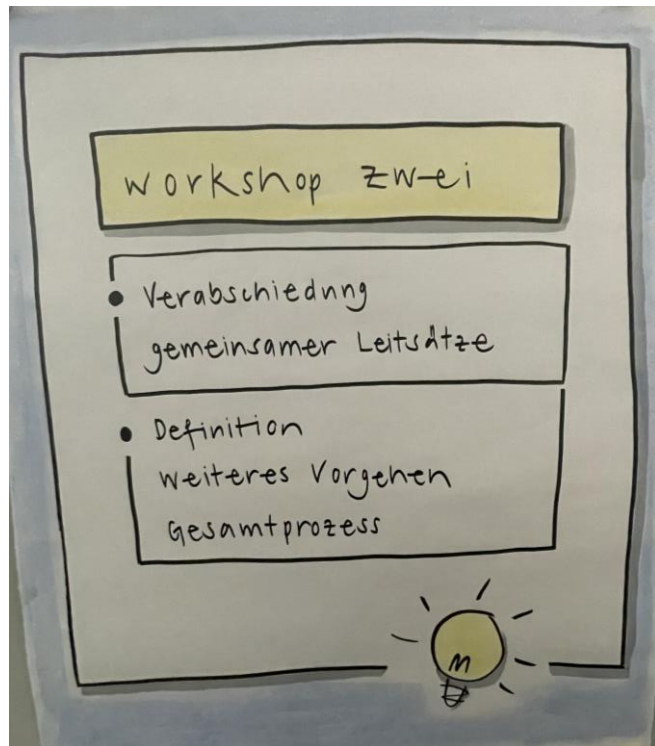 workshop zwei
• Verabschiedung
gemeinsamer Leitsätze
• Definition
weiteres Vorgehen
Gesamtprozess